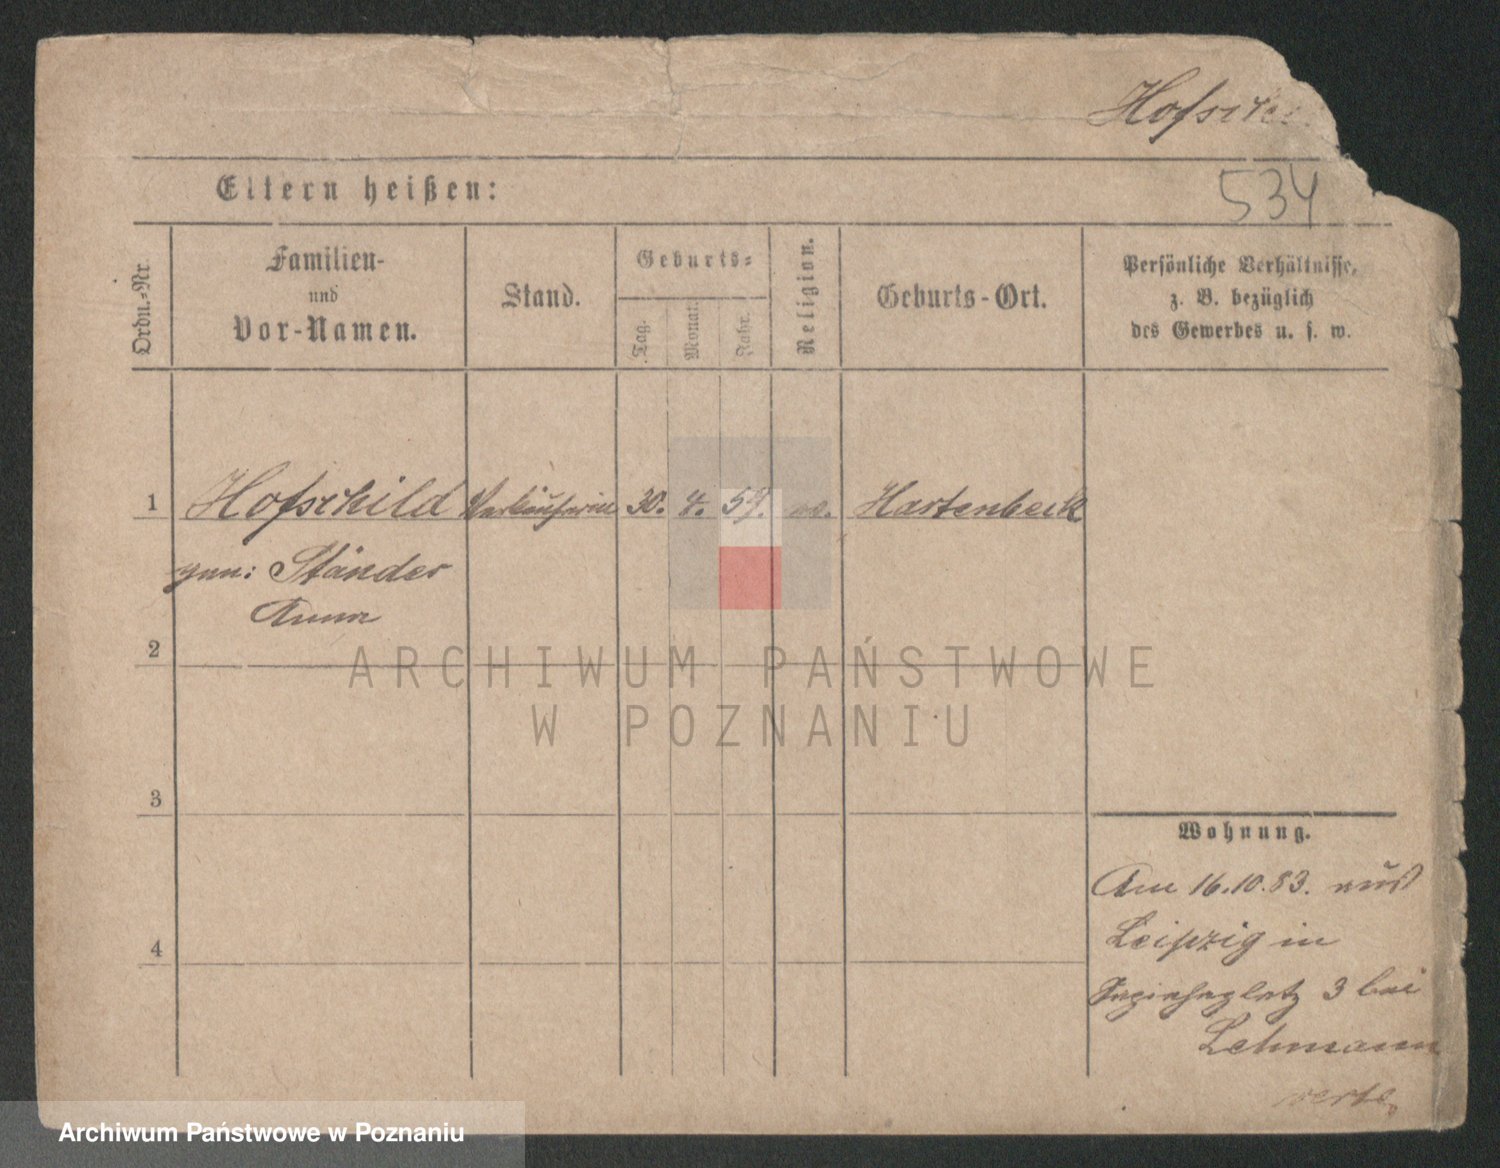 Hofschi
534
Eltern heißen:
Ordn.=Nr.
Familien-
und
Vor-Namen.
Stand.
Geburts=
Tag.
Monat.
Jahr.
Religion.
Geburts-Ort.
Persönliche Verhältnisse,
z. B. bezüglich
des Gewerbes u. s. w.
1 Hofschild Verkäuferin 30. 4. 59. ev. Hartenbeck
gen: Ständer
Anna
2
3
4
Wohnung.
Am 16.10.83. aus
Leipzig in
3 bei
Lehmann
ARCHIWUM PAŃSTWOWE
W POZNANIU
Archiwum Państwowe w Poznaniu